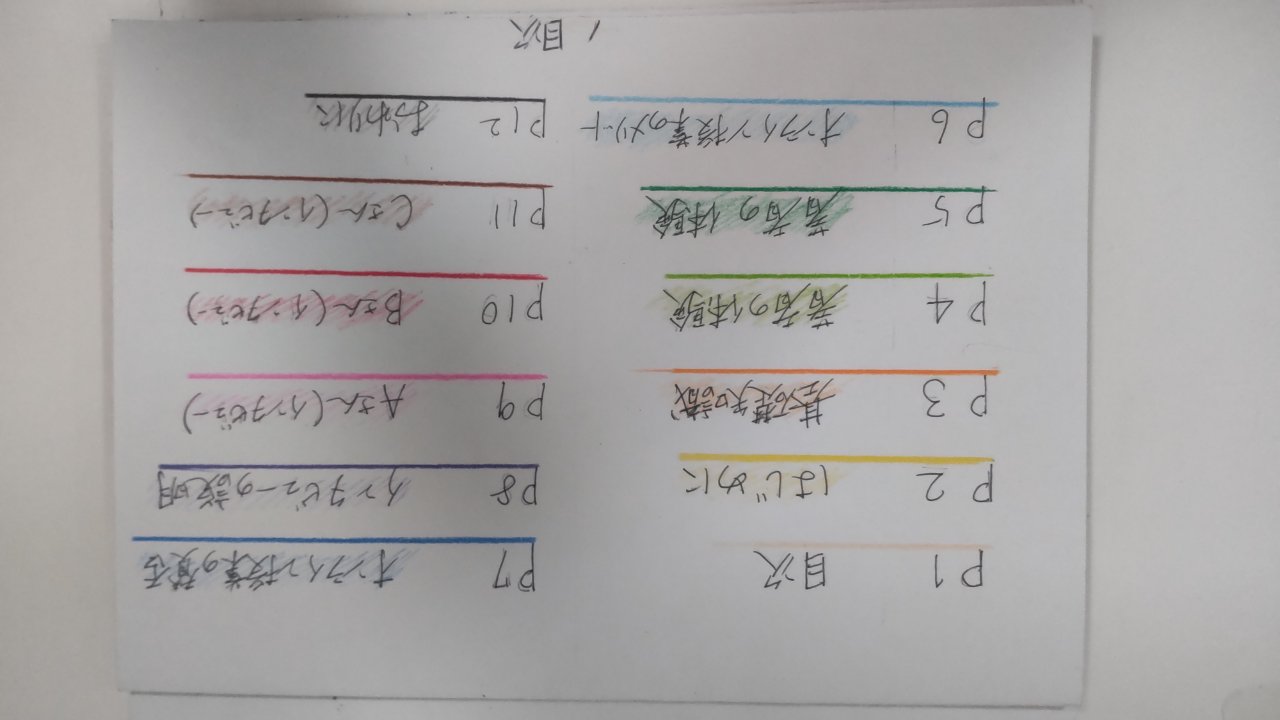 P1 目次
P2 はじめに
P3 基礎知識
P4 著者の体験
P5 著者の体験
P6 オンライン授業のメリット
P7 オンライン授業の賛否
P8 インタビューの説明
P9 Aさん(インタビュー)
P10 Bさん(インタビュー)
P11 Cさん(インタビュー)
P12 おわりに
1 目次